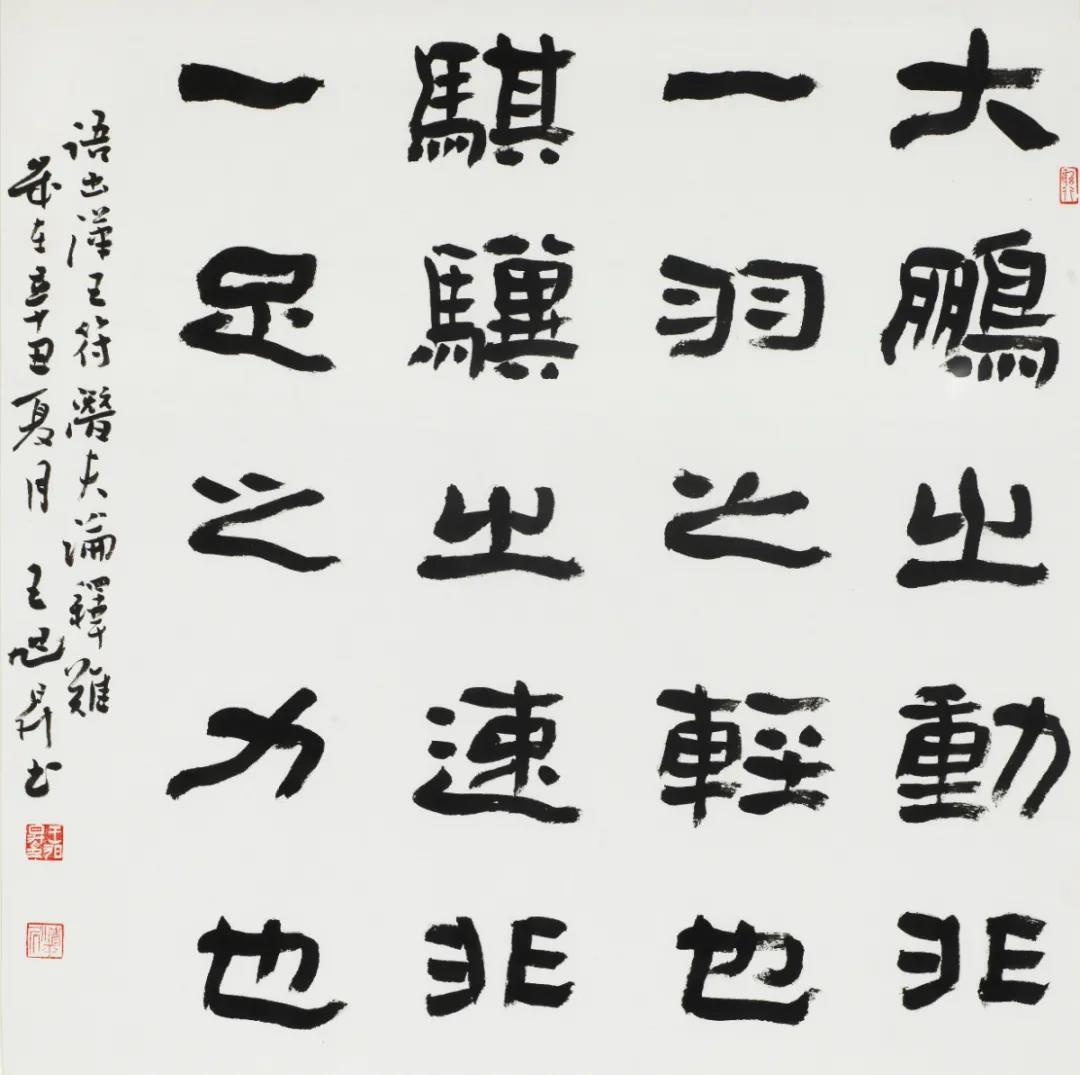 大鵬之動非
一羽之輕也
騏驥之速非
一足之力也
語出漢王符潛夫論釋難
歲在辛丑夏月 王旭昇書